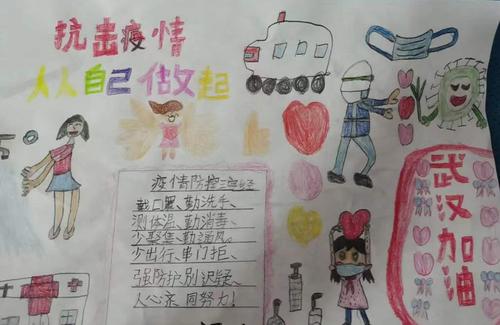 抗击疫情
人人自己做起
疫情防控三字经
戴口罩、勤洗手、
测体温、勤消毒、
少聚集、勤通风。
少出行、串门拒、
强防护、别迟疑、
人心亲、同努力！
武汉加油